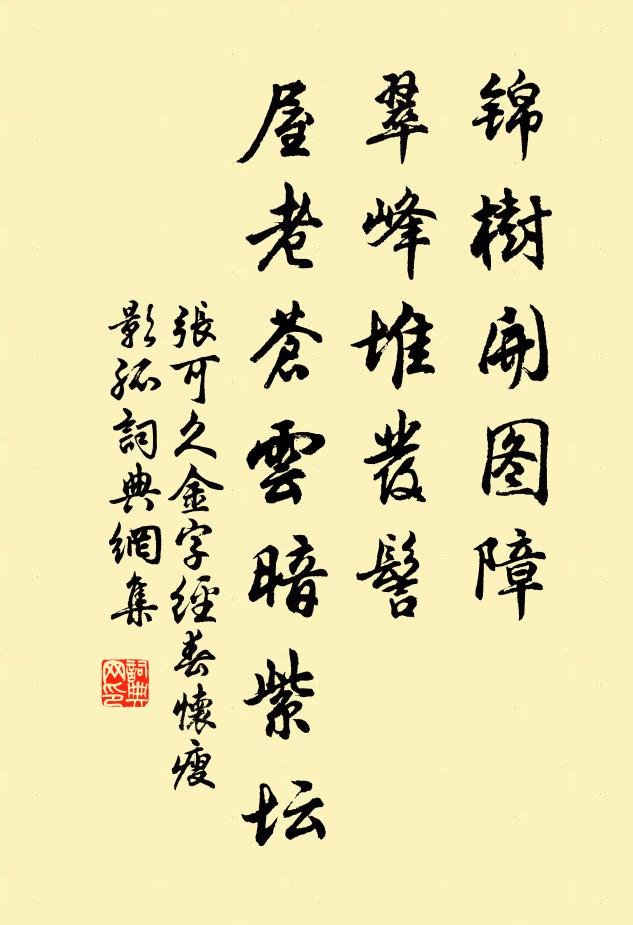 锦樹開图障
翠峰堆發髻
屋老蒼雲暗紫坛
張可久金字經春懷瘦
影孤詞典網集
詞典
网印